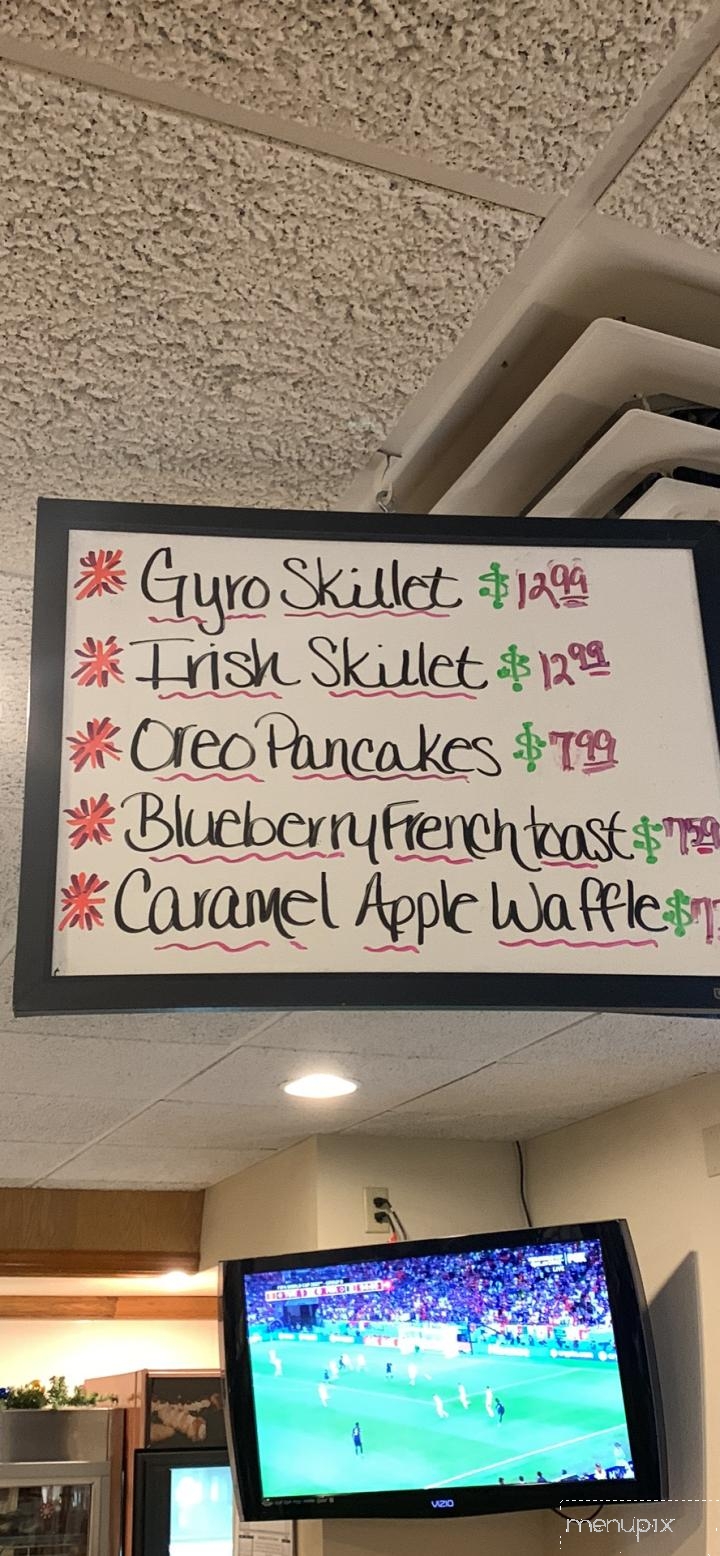 Gyro Skillet $12.99
Irish Skillet $12.99
Oreo Pancakes $7.99
Blueberry French toast $7.59
Caramel Apple Waffle $7
VIZIO
menupix